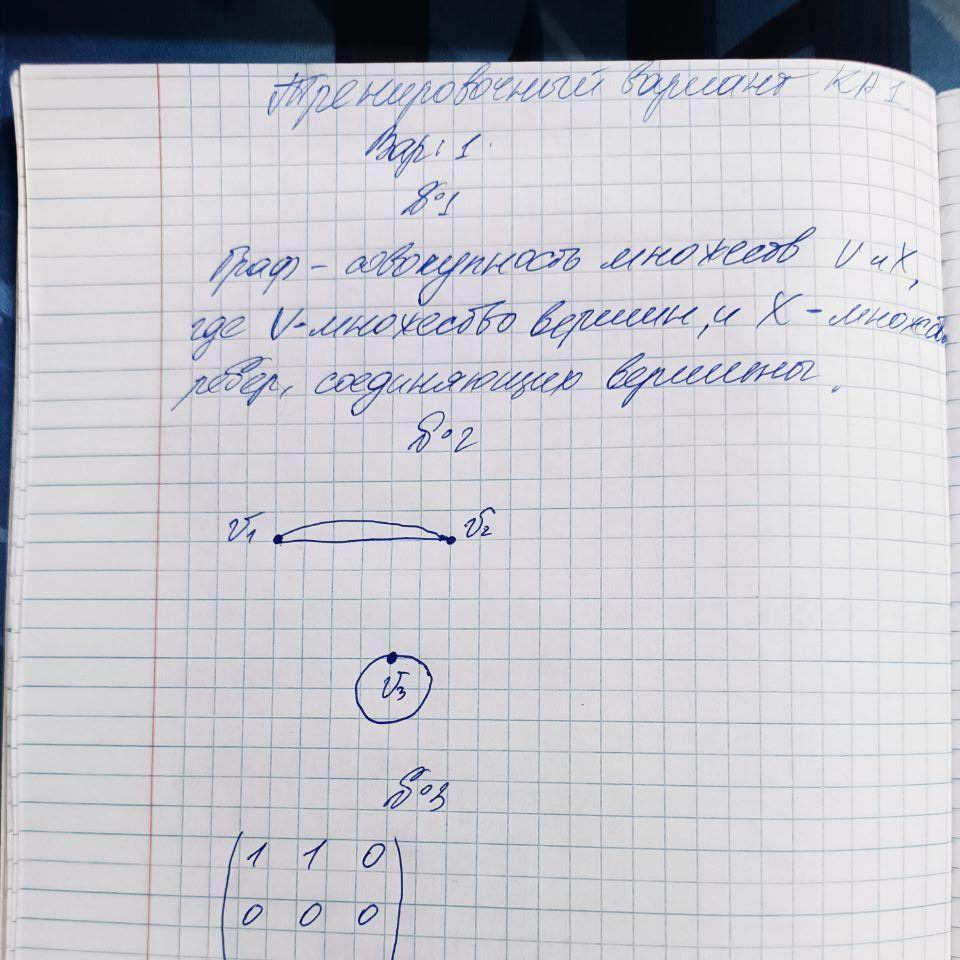 Тренировочный вариант КА1.
Вар: 1.
№1
Граф – совокупность множеств V и X,
где V – множество вершин, и X – множеств
ребер, соединяющих вершины.
№2
v1 v2
v3
№3
1 1 0
0 0 0